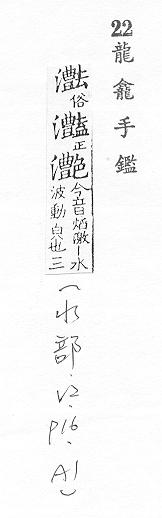 22 龍龕手鑑
俗
灎正
灔今音焰瀲—水
波動皃也三
(水部.V2.P16.A1)